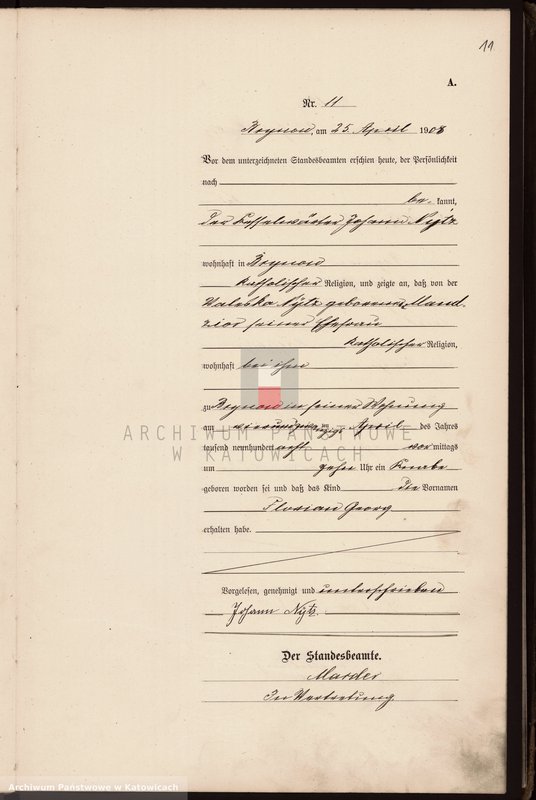 11
A.
Nr. 11
am 25. April 1908
Vor dem unterzeichneten Standesbeamten erschien heute, der Persönlichkeit
nach
be kannt,
der Kesselwärter Johann Nytz
wohnhaft in
katholischer Religion, und zeigte an, daß von der
Valeska Nytz geborenen Mand-
zior seiner Ehefrau
katholischer Religion,
wohnhaft bei ihm
zu in seiner Wohnung
am vierundzwanzigsten April des Jahres
tausend neunhundert acht vor mittags
um zehn Uhr ein Knabe
geboren worden sei und daß das Kind die Vornamen
Florian Georg
erhalten habe.
Vorgelesen, genehmigt und unterschrieben
Johann Nytz.
Der Standesbeamte.
In Vertretung
ARCHIWUM PAŃSTWOWE
W KATOWICACH
Archiwum Państwowe w Katowicach